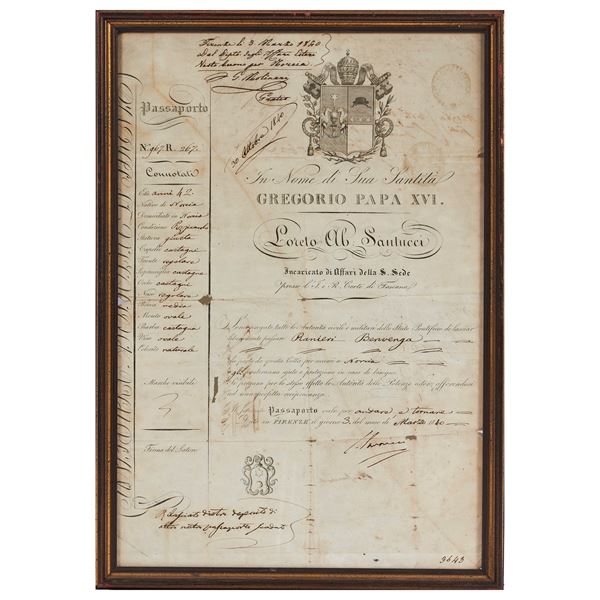 Firenze li 3 Marzo 1840
Dal Dipto degli Affari Esteri
Visto buono per Norcia
20 Ottobre 1840
Passaporto
N. 967. R. 267.
Connotati
Età anni 42
Nativo di Norcia
Domiciliato in Norcia
Condizione Pizzicarolo
Statura giusta
Capelli castagni
Fronte regolare
Sopracciglia castagne
Occhi castagni
Naso regolare
Bocca media
Mento ovale
Barba castagna
Viso ovale
Colorito naturale
Marche visibili
Firma del Latore
In Nome di Sua Santità
GREGORIO PAPA XVI.
Loreto Ab. Santucci
Incaricato di Affari della S. Sede
presso l'I. e R. Corte di Toscana
tutte le Autorità civili e militari dello Stato Pontificio di lasciar
liberamente passare Ranieri Benvenga
che parte da questa Città per andare a Norcia
ajuto e protezione in caso di bisogno
lo stesso effetto le Autorità delle Potenze estere, offerendosi
ad una perfetta reciprocanza.
Passaporto vale per andare, e tornare
in FIRENZE il giorno 3 del mese di Marzo 1840
3643